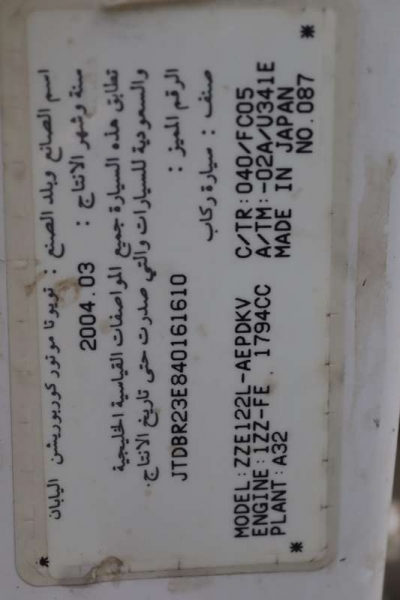 اسم الصانع وبلد الصنع : تويوتا موتور كوربوريشن اليابان
سنة وشهر الانتاج : 2004.03
تطابق هذه السيارة جميع المواصفات القياسية الخليجية
والسعودية للسيارات والتي صدرت حتى تاريخ الانتاج.
الرقم المميز : JTDBR23E840161610
صنف : سيارة ركاب
MODEL:ZZE122L-AEPDKV C/TR:040/FC05
ENGINE:1ZZ-FE 1794CC A/TM:-02A/U341E
PLANT:A32 MADE IN JAPAN
NO.087